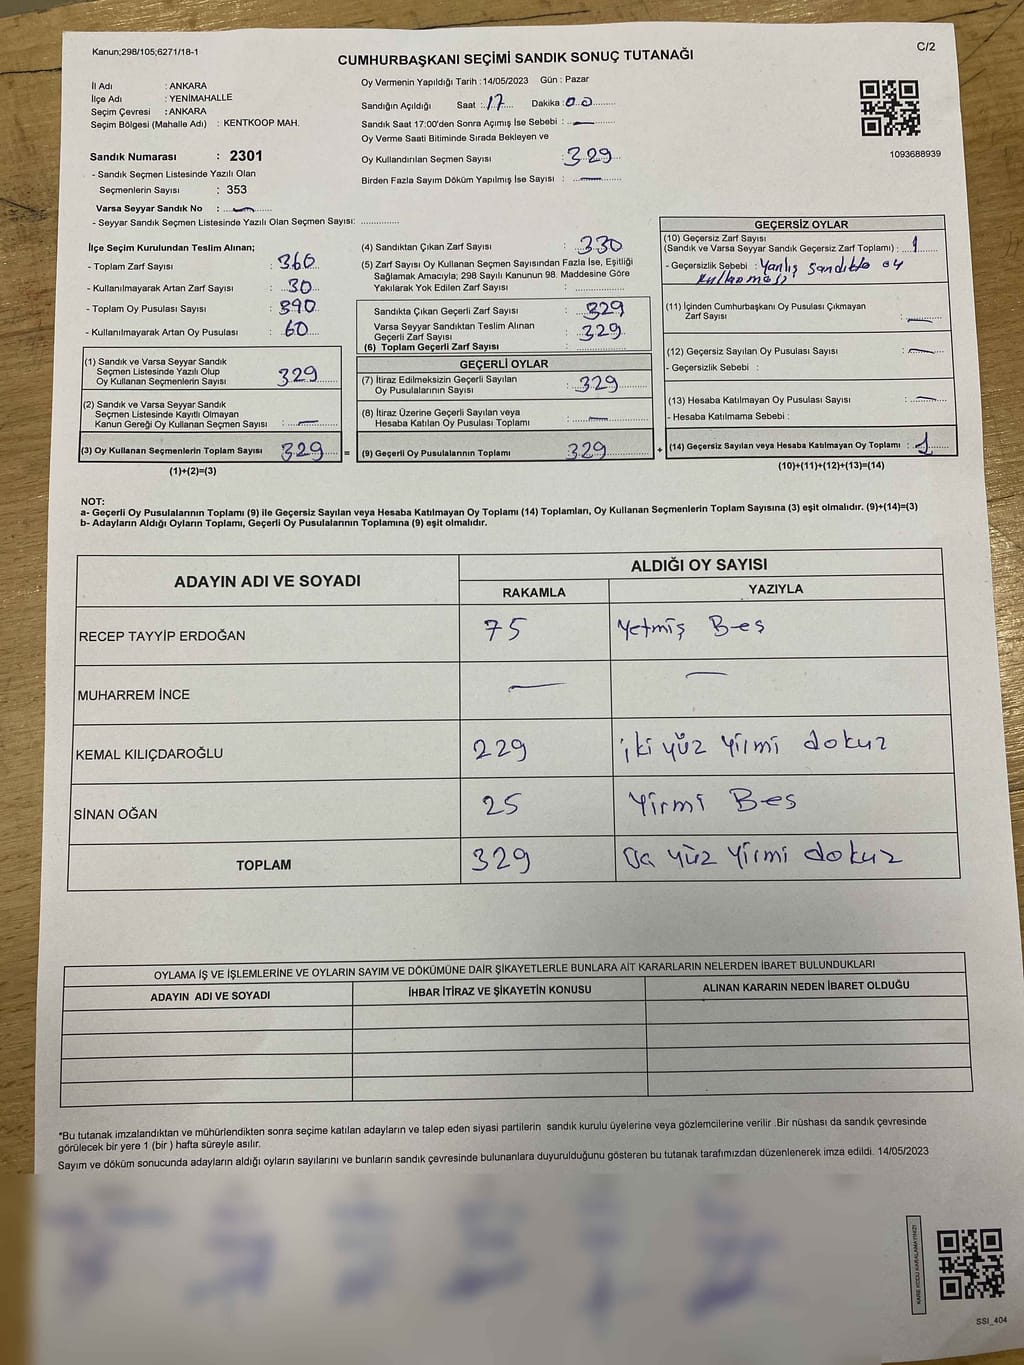 Kanun;298/105;6271/18-1
C/2
CUMHURBAŞKANI SEÇİMİ SANDIK SONUÇ TUTANAĞI
İl Adı : ANKARA
İlçe Adı : YENİMAHALLE
Seçim Çevresi : ANKARA
Seçim Bölgesi (Mahalle Adı) : KENTKOOP MAH.
Sandık Numarası : 2301
- Sandık Seçmen Listesinde Yazılı Olan
Seçmenlerin Sayısı : 353
Varsa Seyyar Sandık No : —
- Seyyar Sandık Seçmen Listesinde Yazılı Olan Seçmen Sayısı: ..............
Oy Vermenin Yapıldığı Tarih :14/05/2023 Gün : Pazar
Sandığın Açıldığı Saat :.17.... Dakika :00.........
Sandık Saat 17:00'den Sonra Açımış İse Sebebi : ..—........
Oy Verme Saati Bitiminde Sırada Bekleyen ve
Oy Kullandırılan Seçmen Sayısı : 329
Birden Fazla Sayım Döküm Yapılmış İse Sayısı : ..—.......
1093688939
İlçe Seçim Kurulundan Teslim Alınan;
- Toplam Zarf Sayısı : 360
- Kullanılmayarak Artan Zarf Sayısı : 30
- Toplam Oy Pusulası Sayısı : 390
- Kullanılmayarak Artan Oy Pusulası : 60
(1) Sandık ve Varsa Seyyar Sandık
Seçmen Listesinde Yazılı Olup
Oy Kullanan Seçmenlerin Sayısı : 329
(2) Sandık ve Varsa Seyyar Sandık
Seçmen Listesinde Kayıtlı Olmayan
Kanun Gereği Oy Kullanan Seçmen Sayısı : —
(3) Oy Kullanan Seçmenlerin Toplam Sayısı 329 =
(1)+(2)=(3)
(4) Sandıktan Çıkan Zarf Sayısı : 330
(5) Zarf Sayısı Oy Kullanan Seçmen Sayısından Fazla İse, Eşitliği
Sağlamak Amacıyla; 298 Sayılı Kanunun 98. Maddesine Göre
Yakılarak Yok Edilen Zarf Sayısı : ...............
Sandıkta Çıkan Geçerli Zarf Sayısı : 329
Varsa Seyyar Sandıktan Teslim Alınan
Geçerli Zarf Sayısı : 329
(6) Toplam Geçerli Zarf Sayısı : ...............
GEÇERLİ OYLAR
(7) İtiraz Edilmeksizin Geçerli Sayılan
Oy Pusulalarının Sayısı : 329
(8) İtiraz Üzerine Geçerli Sayılan veya
Hesaba Katılan Oy Pusulası Toplamı : —
(9) Geçerli Oy Pusulalarının Toplamı : 329 +
GEÇERSİZ OYLAR
(10) Geçersiz Zarf Sayısı
(Sandık ve Varsa Seyyar Sandık Geçersiz Zarf Toplamı) : 1
- Geçersizlik Sebebi : Yanlış sandıkta oy
kullanması
(11) İçinden Cumhurbaşkanı Oy Pusulası Çıkmayan
Zarf Sayısı : —
(12) Geçersiz Sayılan Oy Pusulası Sayısı : —
- Geçersizlik Sebebi :
(13) Hesaba Katılmayan Oy Pusulası Sayısı : —
- Hesaba Katılmama Sebebi :
(14) Geçersiz Sayılan veya Hesaba Katılmayan Oy Toplamı : 1
(10)+(11)+(12)+(13)=(14)
NOT:
a- Geçerli Oy Pusulalarının Toplamı (9) ile Geçersiz Sayılan veya Hesaba Katılmayan Oy Toplamı (14) Toplamları, Oy Kullanan Seçmenlerin Toplam Sayısına (3) eşit olmalıdır. (9)+(14)=(3)
b- Adayların Aldığı Oyların Toplamı, Geçerli Oy Pusulalarının Toplamına (9) eşit olmalıdır.
ADAYIN ADI VE SOYADI
ALDIĞI OY SAYISI
RAKAMLA YAZIYLA
RECEP TAYYİP ERDOĞAN 75 Yetmiş Beş
MUHARREM İNCE — —
KEMAL KILIÇDAROĞLU 229 iki yüz Yirmi dokuz
SİNAN OĞAN 25 Yirmi Bes
TOPLAM 329 yüz Yirmi dokuz
OYLAMA İŞ VE İŞLEMLERİNE VE OYLARIN SAYIM VE DÖKÜMÜNE DAİR ŞİKAYETLERLE BUNLARA AİT KARARLARIN NELERDEN İBARET BULUNDUKLARI
ADAYIN ADI VE SOYADI İHBAR İTİRAZ VE ŞİKAYETİN KONUSU ALINAN KARARIN NEDEN İBARET OLDUĞU
*Bu tutanak imzalandıktan ve mühürlendikten sonra seçime katılan adayların ve talep eden siyasi partilerin sandık kurulu üyelerine veya gözlemcilerine verilir .Bir nüshası da sandık çevresinde
görülecek bir yere 1 (bir ) hafta süreyle asılır.
Sayım ve döküm sonucunda adayların aldığı oyların sayılarını ve bunların sandık çevresinde bulunanlara duyurulduğunu gösteren bu tutanak tarafımızdan düzenlenerek imza edildi. 14/05/2023
KARE KODU KARALAMAYINIZ!
SSI_404